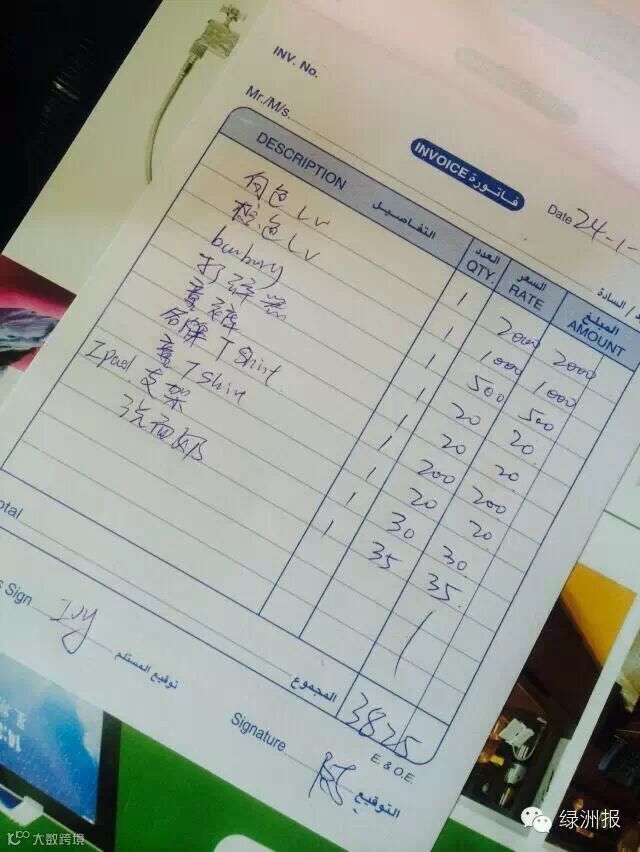 INV. No.
Mr./M/s.
INVOICE فاتورة
Date 24-1-
السادة /
DESCRIPTION التفاصيل العدد QTY. السعر RATE المبلغ AMOUNT
白色 LV 1 2000 2000
橙色 LV 1 1000 1000
burbury 1 500 500
打碎 1 20 20
童裤 1 20 20
名牌 T Shirt 1 200 200
童 T Shirt 1 20 20
Ipad 支架 1 30 30
35 35
otal
المجموع 3825
s Sign Ivy توقيع المستلم
E. & O.E.
Signature التوقيع
大数跨境
绿洲报